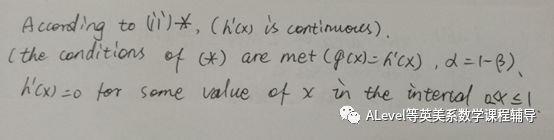 According to (ii)*, (h'(x) is continuous).
(the conditions of (*) are met (g(x)=h'(x), α=1-β),
h'(x)=0 for some value of x in the interval 0≤x≤1
ALevel等英美系数学课程辅导